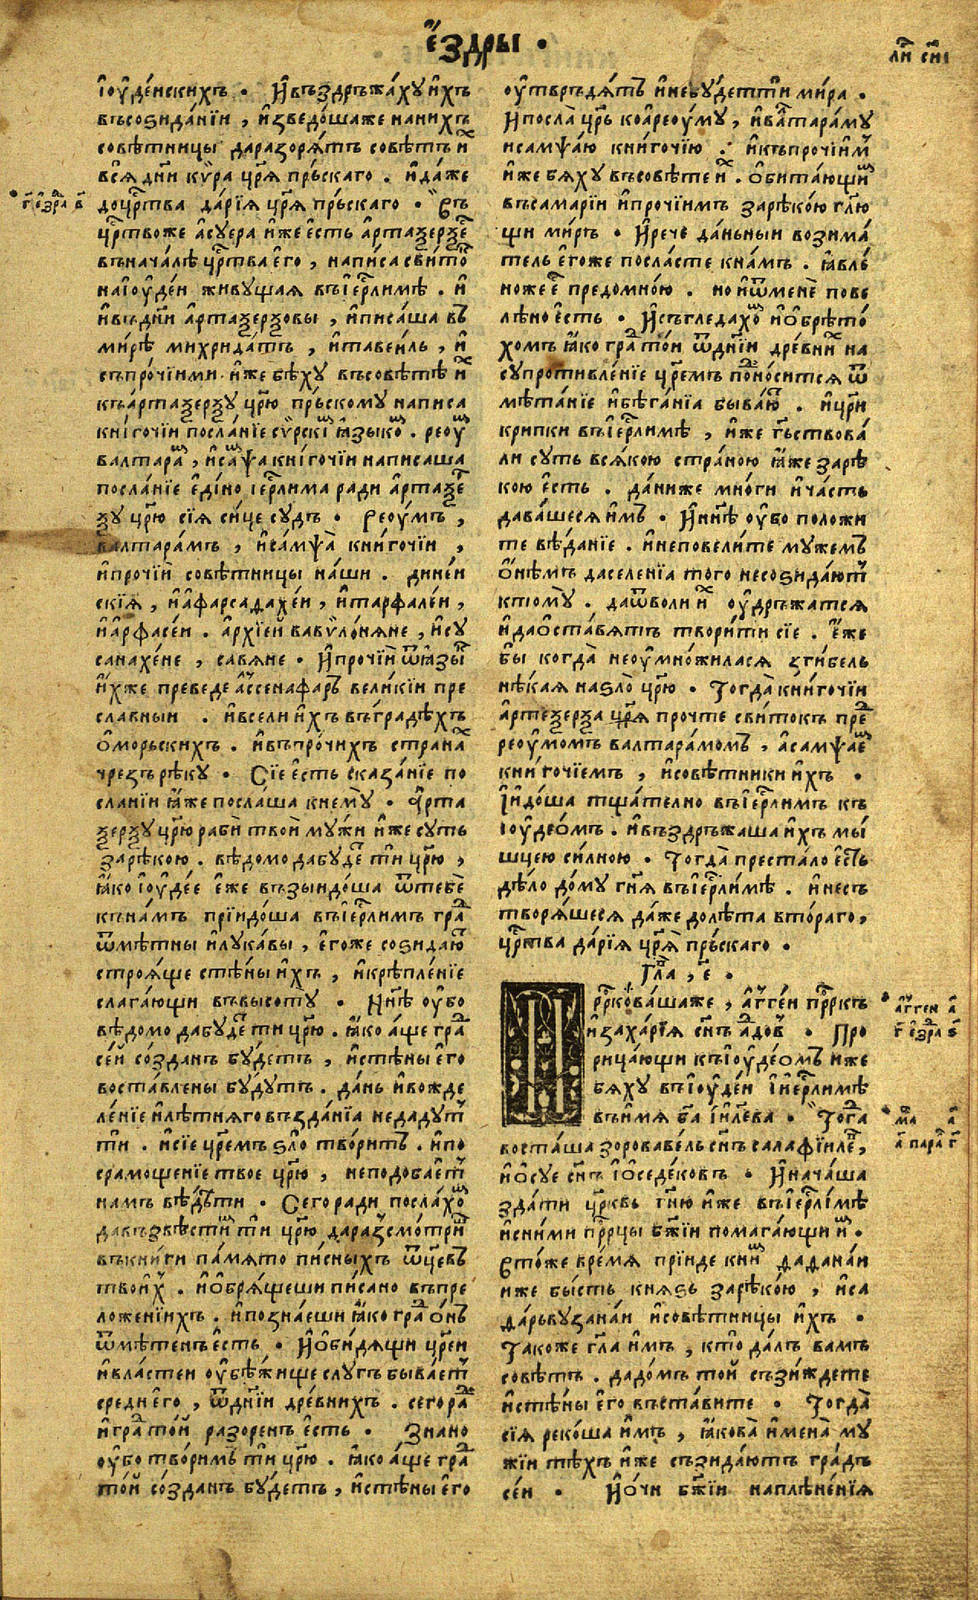 є҆́здры •
ли҃ сн҃і
і҆ꙋде́искихъ • И҆въздръжа́хꙋ и҆́хъ
въсоѕида́нїи , и҆зведо́шаже нани́хъ
совѣ́тницы дараꙁоря́тъ совѣ́тъ и҆ⷯ
всѧ̀ дн҃и кѵ́ра цр҃ѧ пръ́скаго . и҆да́же
доцр҃тва да́рїѧ цр҃ѧ пръ́скаго • Съ
г҃ е҆зра в҃
цр҃твоже а҆сꙋера и҆́же е҆́сть а҆ртаѯерѯе
въначалѣ цр҃тва е҆го̀ , написа сви́то
наі҆ꙋде́и живꙋщая въі҆е҆рⷭ҇лимѣ . и҆
и҆въдн҃и а҆ртаѯерѯовы , и҆писа́ша въ
ми́рѣ михрида́тъ , и҆тавеи́лъ , и҆
съпро́чїими и҆́же бѣ́хꙋ въсовѣ́тѣ и҆ⷯ
къа҆ртаѯе́рѯꙋ цр҃ю пръ́скомꙋ написа
кни́гочїи посла́нїе сѵ́рски ꙗ҆зыко . реоу
валтара , и҆са́мѱа кни́гочїи написаша
посла́нїе е҆ди́но і҆ерⷭ҇лима ради а҆ртаѯе
ѯꙋ цр҃ю сїѧ си́це сꙋдъ • Реоу́мъ ,
валтара́мъ , и҆са́мѱа̀ кни́гочїи ,
и҆прочїи совѣ́тницы на́ши . дине́и
скїѧ , и҆а҆фарсадахе́и , и҆тарфале́и ,
и҆а҆рфасе́и . а҆рхїеи́ вавѷло́няне , и҆сꙋ
санахе́не , савяне • И҆прочїи ѿꙗ҆зы
и҆́хже преведе а҆ссенафа́ръ вели́кїи пре
сла́вныи . и҆всели и҆́хъ въгра́дѣхъ
о҆морьскихъ . и҆въпро́чихъ страна
чреꙁъ рѣ́кꙋ • Сїе е҆́сть сказа́нїе по
сланїи ꙗ҆́же послаша кнемꙋ̀ • А҆рта
ѯерѯꙋ цр҃ю раби̑ твои̑ мꙋжи и҆́же сꙋть
зарѣ́кою . вѣ́домо дабꙋде ти́ цр҃ю ,
ꙗ҆́ко і҆ꙋде́е е҆́же възыидо́ша ѿтебѐ
къна́мъ прїидо́ша въі҆ерⷭ҇лимъ гра
ѿмѣ́тны и҆лꙋка́вы , е҆го́же соѕидаю
строя́ще стѣ́ны и҆́хъ , и҆крѣпле́нїе
слага́ющи въвысотꙋ • Нн҃ѣ оу҆бо
вѣ́домо дабꙋде ти́ цр҃ю . ꙗ҆́ко а҆́ще гра
се́и со́зданъ бꙋ́детъ , и҆стѣ́ны е҆го
воставлены бꙋ́дꙋтъ . да́нь и҆вожде
ле́нїе и҆лѣ́тняго въꙁда́нїѧ недадꙋт
ти́ . и҆сїе цр҃емъ ѕло̀ твори́тъ . и҆по
срамощенїе твое цр҃ю , неподоба́ет
на́мъ вѣ́дѣти • Сего́ ради посла́хо
давъзвѣсти ти́ цр҃ю дараꙁсмо́три
въкни́ги па́мѧто пи́сныхъ ѿц҃евъ
твои́х . и҆о҆бря́щеши пи́сано въпре
ложенїихъ . и҆позна́еши ꙗ҆́ко гра о́нъ
ѿмѣ́тенъ е҆́сть • И҆о҆би́дящи цр҃еи
и҆вла́стеи оу҆бѣ́жище слꙋгъ быва́ет
среди е҆го , ѿдн҃їи дре́внихъ . сегора
и҆гра то́и раꙁоренъ е҆́сть • Зна́но
оу҆бо твори́мъ ти́ цр҃ю . ꙗ҆́ко а҆́ще гра
то́и со́зданъ бꙋ́детъ , и҆стѣ́ны е҆го
оу҆твръдя́тъ и҆небꙋ́детти ми́ра .
И҆посла̀ цр҃ь коа҆реоꙋ́мꙋ , и҆валтара́мꙋ
исамѱа́ю кни́гочїю . и҆къпро́чїим
и҆́же бя́хꙋ въсовѣ́те и҆ⷯ . о҆бита́ющи
въсамарїи и҆про́чїимъ зарѣ́кою гл҃ю
щи ми́ръ • И҆рече да́ньныи возима
тель е҆го́же посла́сте кна́мъ . ꙗ҆вле́
ноже е҆ предомно́ю . но и҆ѿменѐ пове
лѣ́но е҆́сть • И҆съгледахо и҆о҆брѣто́
хомъ ꙗ҆́ко гра то́и ѿдн҃їи дре́вни на
сꙋпротивле́нїе цр҃емъ поно́сится ѿ
мѣта́нїе и҆бѣга́нїѧ быва́ю . и҆цр҃и
крипки въі҆ерⷭ҇лимѣ , и҆́же гдⷭ҇ьствова́
ли сꙋть вся́кою страно́ю ꙗ҆́же зарѣ
кою е҆́сть . да́ниже мно́ги и҆ча́сть
дава́шеся и҆́мъ • И҆нн҃ѣ оу҆бо положи
те вѣ́данїе . и҆неповели́те мꙋже́мъ
о҆́нѣмъ даселенїѧ того несоѕида́ют
ктомꙋ̀ . даѿволи и҆ⷯ оу҆дръжатся
и҆дао҆ста́вятъ твори́ти сїе . е҆́же
бы̀ когда̀ неоу҆мно́жилася ꙁги́бель
нѣ́кая наѕло̀ цр҃ю • Тогда̀ кни́гочїи
а҆ртеѯерѯа цр҃ѧ прочте сви́токъ пре
реоу́момъ валтара́момъ , а҆самѱае
кни́гочїемъ , и҆совѣ́тники и҆́хъ •
І҆и҆до́ша тща́телно въі҆ерⷭ҇лимъ къ
і҆ꙋдео́мъ . и҆въздръжаша и҆́хъ мы́
шцею си́лною • Тогда̀ преста́ло е҆́сть
дѣ́ло до́мꙋ гн҃ѧ въі҆ерⷭ҇ли́мѣ . и҆несъ
творя́шеся да́же долѣта вто́раго ,
цр҃тва да́рїѧ цр҃ѧ̀ пръ́скаго •
Гла , е҃ .
Прⷪ҇рко́вашаже , а҆гге́и прⷪ҇ркъ
и҆заха́рїѧ сн҃ъ а҆до́в • Про
рица́ющи къі҆ꙋде́омъ и҆́же
бя́хꙋ въі҆ꙋде́и і҆и҆ерⷭ҇ли́мѣ
въи́мя бг҃а і҆и҃лева . Тогда
а҆гген а҃
г҃ е҆зра ѕ҃
маⷴ а҃
а҃ пара г҃
воста́ша зорова́вель сн҃ъ салафїиле ,
и҆о҆сꙋе сн҃ъ і҆о҆седе́ковъ • И҆нача́ша
зда́ти цр҃квь гн҃ю и҆́же въі҆ерⷭ҇ли́мѣ
и҆сни́ми прⷪ҇рцы бж҃їи помага́ющи и҆м .
Вто́же вре́мя прїиде кни даⷣана́и
иже бы́сть кня́ѕь зарѣ́кою , и҆са
да́рьвꙋзана́и и҆совѣ́тницы и҆́хъ •
Та́коже гл҃а и҆́мъ , кто̀ да́лъ вамъ
совѣ́тъ . дадо́мъ то́и съꙁи́ждете
и҆стѣ́ны е҆го въста́вите • Тогда̀
сїѧ реко́ша и҆́мъ , ꙗ҆кова̀ и҆мена̀ мꙋ
жїи тѣ́хъ и҆́же съꙁида́ютъ гра́дъ
се́и • И҆о́чи бж҃їи наплѣне́нїѧ